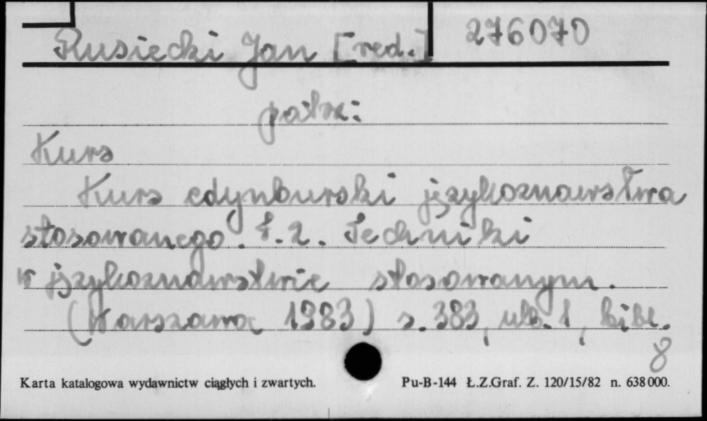 Rusiecki Jan [red.] 276070
patrz:
Kurs
Kurs edynburski językoznawstwa
stosowanego. t. 2. Techniki
w językoznawstwie stosowanym.
(Warszawa 1983) s. 383, nlb. 1, bibl.
8
Karta katalogowa wydawnictw ciągłych i zwartych. Pu-B-144 Ł.Z.Graf. Z. 120/15/82 n. 638000.